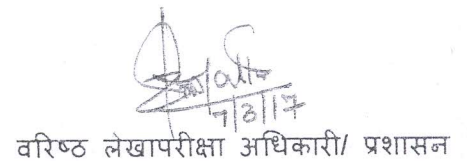 7/3/17
वरिष्ठ लेखापरीक्षा अधिकारी/ प्रशासन